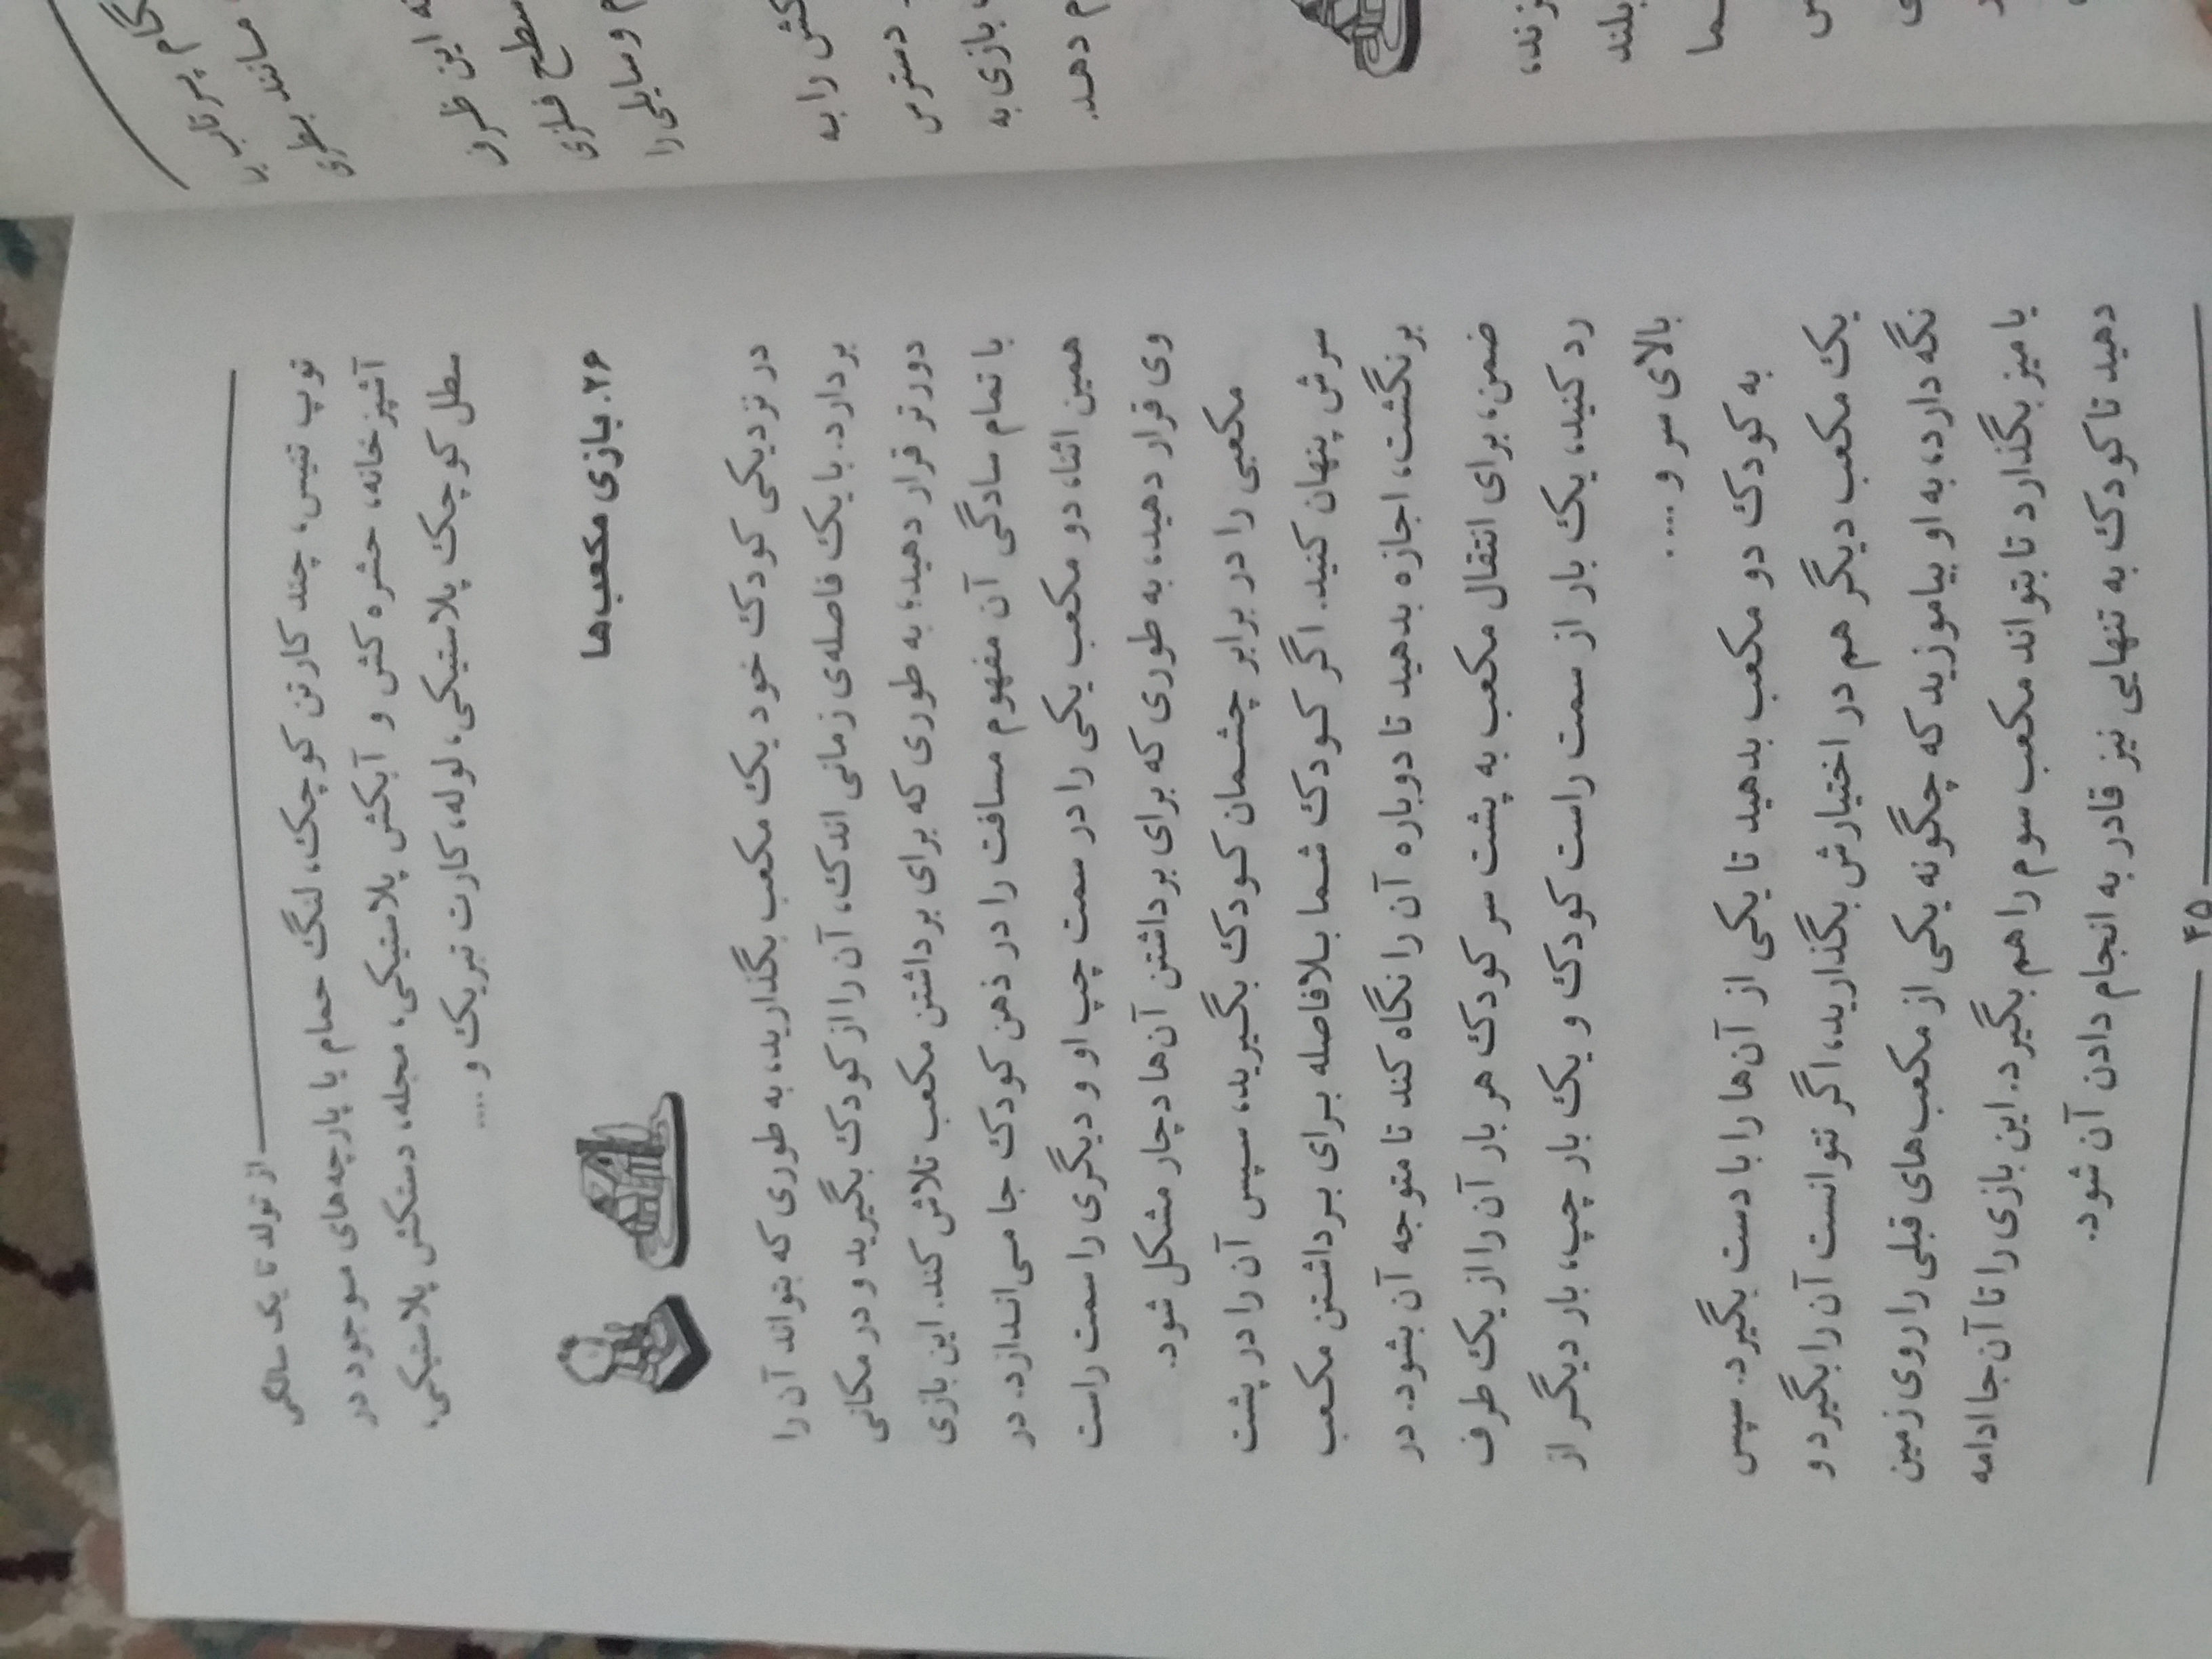 از تولد تا یک سالگی
توپ تنیس، چند کارتن کوچک، لنگ حمام یا پارچه‌های موجود در
آشپزخانه، حشره کش و آبکش پلاستیکی، مجله، دستکش پلاستیکی،
سطل کوچک پلاستیکی، لوله، کارت تبریک و ....
۲۶. بازی مکعب‌ها
در نزدیکی کودک خود یک مکعب بگذارید، به طوری که بتواند آن را
بردارد. با یک فاصله‌ی زمانی اندک، آن را از کودک بگیرید و در مکانی
دورتر قرار دهید؛ به طوری که برای برداشتن مکعب تلاش کند. این بازی
با تمام سادگی آن مفهوم مسافت را در ذهن کودک جا می‌اندازد. در
همین اثنا، دو مکعب یکی را در سمت چپ او و دیگری را سمت راست
وی قرار دهید، به طوری که برای برداشتن آن‌ها دچار مشکل شود.
مکعبی را در برابر چشمان کودک بگیرید، سپس آن را در پشت
سرش پنهان کنید. اگر کودک شما بلافاصله برای برداشتن مکعب
برنگشت، اجازه بدهید تا دوباره آن را نگاه کند تا متوجه آن بشود. در
ضمن، برای انتقال مکعب به پشت سر کودک هر بار آن را از یک طرف
رد کنید، یک بار از سمت راست کودک و یک بار چپ، بار دیگر از
بالای سر و ....
به کودک دو مکعب بدهید تا یکی از آن‌ها را با دست بگیرد. سپس
یک مکعب دیگر هم در اختیارش بگذارید، اگر نتوانست آن را بگیرد و
نگه دارد، به او بیاموزید که چگونه یکی از مکعب‌های قبلی را روی زمین
یا میز بگذارد تا بتواند مکعب سوم را هم بگیرد. این بازی را تا آن جا ادامه
دهید تا کودک به تنهایی نیز قادر به انجام دادن آن شود.
۴۵
مانند بطری
این ظرو
سطح فلزی
و سایلی را
کش را به
دسترس
بازی به
م دهد.
زند،
بلند